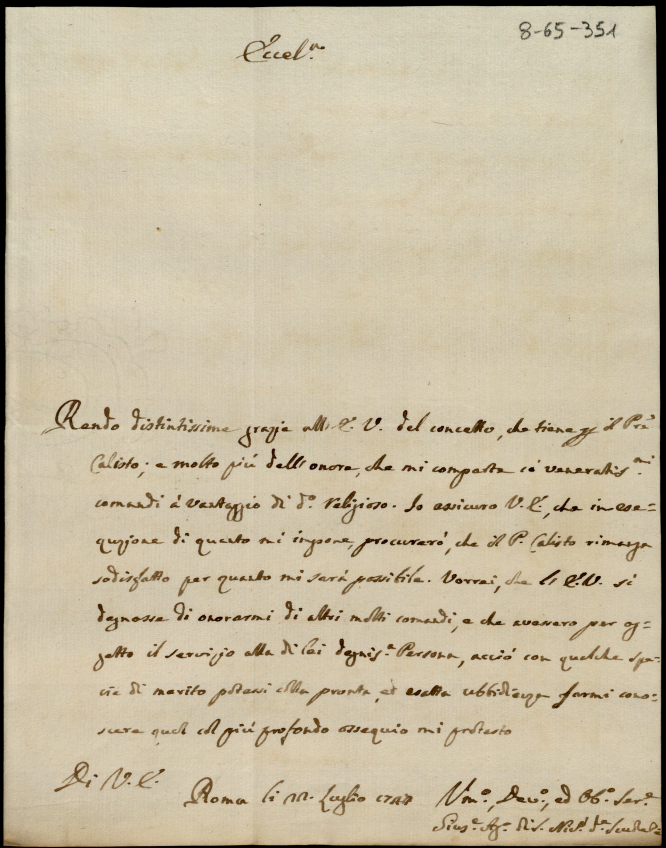 8-65-351
Eccel.mo
Rendo distintissime grazie all'E. V. del concetto, che tiene per il Pre
Calisto; e molto più dell'onore, che mi comparte co' veneratiss.mi
comandi à vantaggio di d.o religioso. Io assicuro V. E., che in ese=
cuzione di quanto mi impone, procurerò, che il P. Calisto rimanga
sodisfatto per quanto mi sarà possibile. Vorrei, che l'E. V. si
degnasse di onorarmi di altri molti comandi, e che avessero per og=
getto il servizio alla di lei degniss.a Persona, acciò con qualche spe=
cie di merito potessi colla pronta, ed esatta ubbidienza farmi cono=
scere qual col più profondo ossequio mi protesto
Di V. E.
Roma li Luglio Vmo., Devo., ed Obo. Sere.